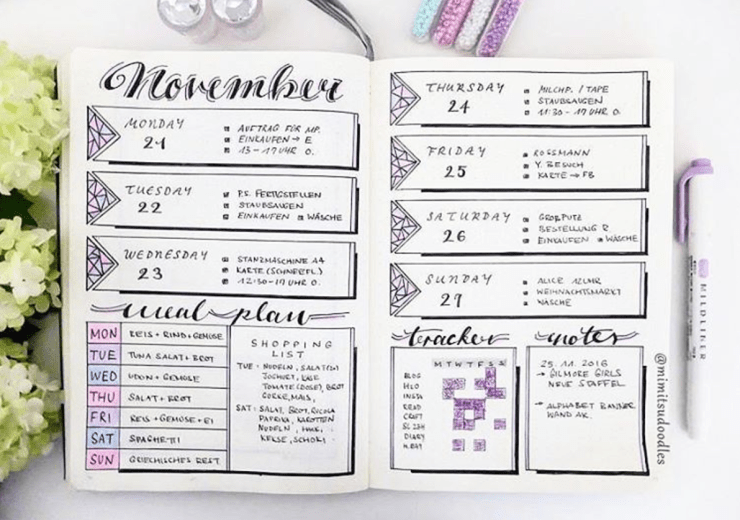 November
MONDAY
21
AUFTRAG FÜR MP.
EINKAUFEN → E
13 - 17 UHR O.
TUESDAY
22
P.S. FERTIGSTELLEN
STAUBSAUGEN
EINKAUFEN WÄSCHE
WEDNESDAY
23
STANZMASCHINE A4
KARTE (SCHNEEFL.)
12:30 - 17 UHR O.
meal plan
MON REIS + RIND + GEMÜSE
TUE TUNA SALAT + BROT
WED UDON + GEMÜSE
THU SALAT + BROT
FRI REIS + GEMÜSE + EI
SAT SPAGHETTI
SUN GRIECHISCHES REST.
SHOPPING
LIST
TUE: NUDELN, SALAT
JOGHURT, KÄSE
TOMATE (DOSE), BROT
GURKE, MAIS,
SAT: SALAT, BROT, RUCOLA
PAPRIKA, KAROTTEN
NUDELN,
KEKSE, SCHOKI
THURSDAY
24
MILCHP. / TAPE
STAUBSAUGEN
11:30 - 17 UHR O.
FRIDAY
25
ROSSMANN
Y. BESUCH
KARTE → FB
SATURDAY
26
GROßPUTZ
BESTELLUNG R
EINKAUFEN WÄSCHE
SUNDAY
27
ALICE 12 UHR
WEIHNACHTSMARKT
WÄSCHE
tracker
M T W T F S S
BLOG
H2O
INSTA
READ
CREFT
DIARY
notes
25. 11. 2016
→ GILMORE GIRLS
NEUE STAFFEL
→ ALPHABET BANNER
WAND AK.
MILDLINER
@mimitsudoodles